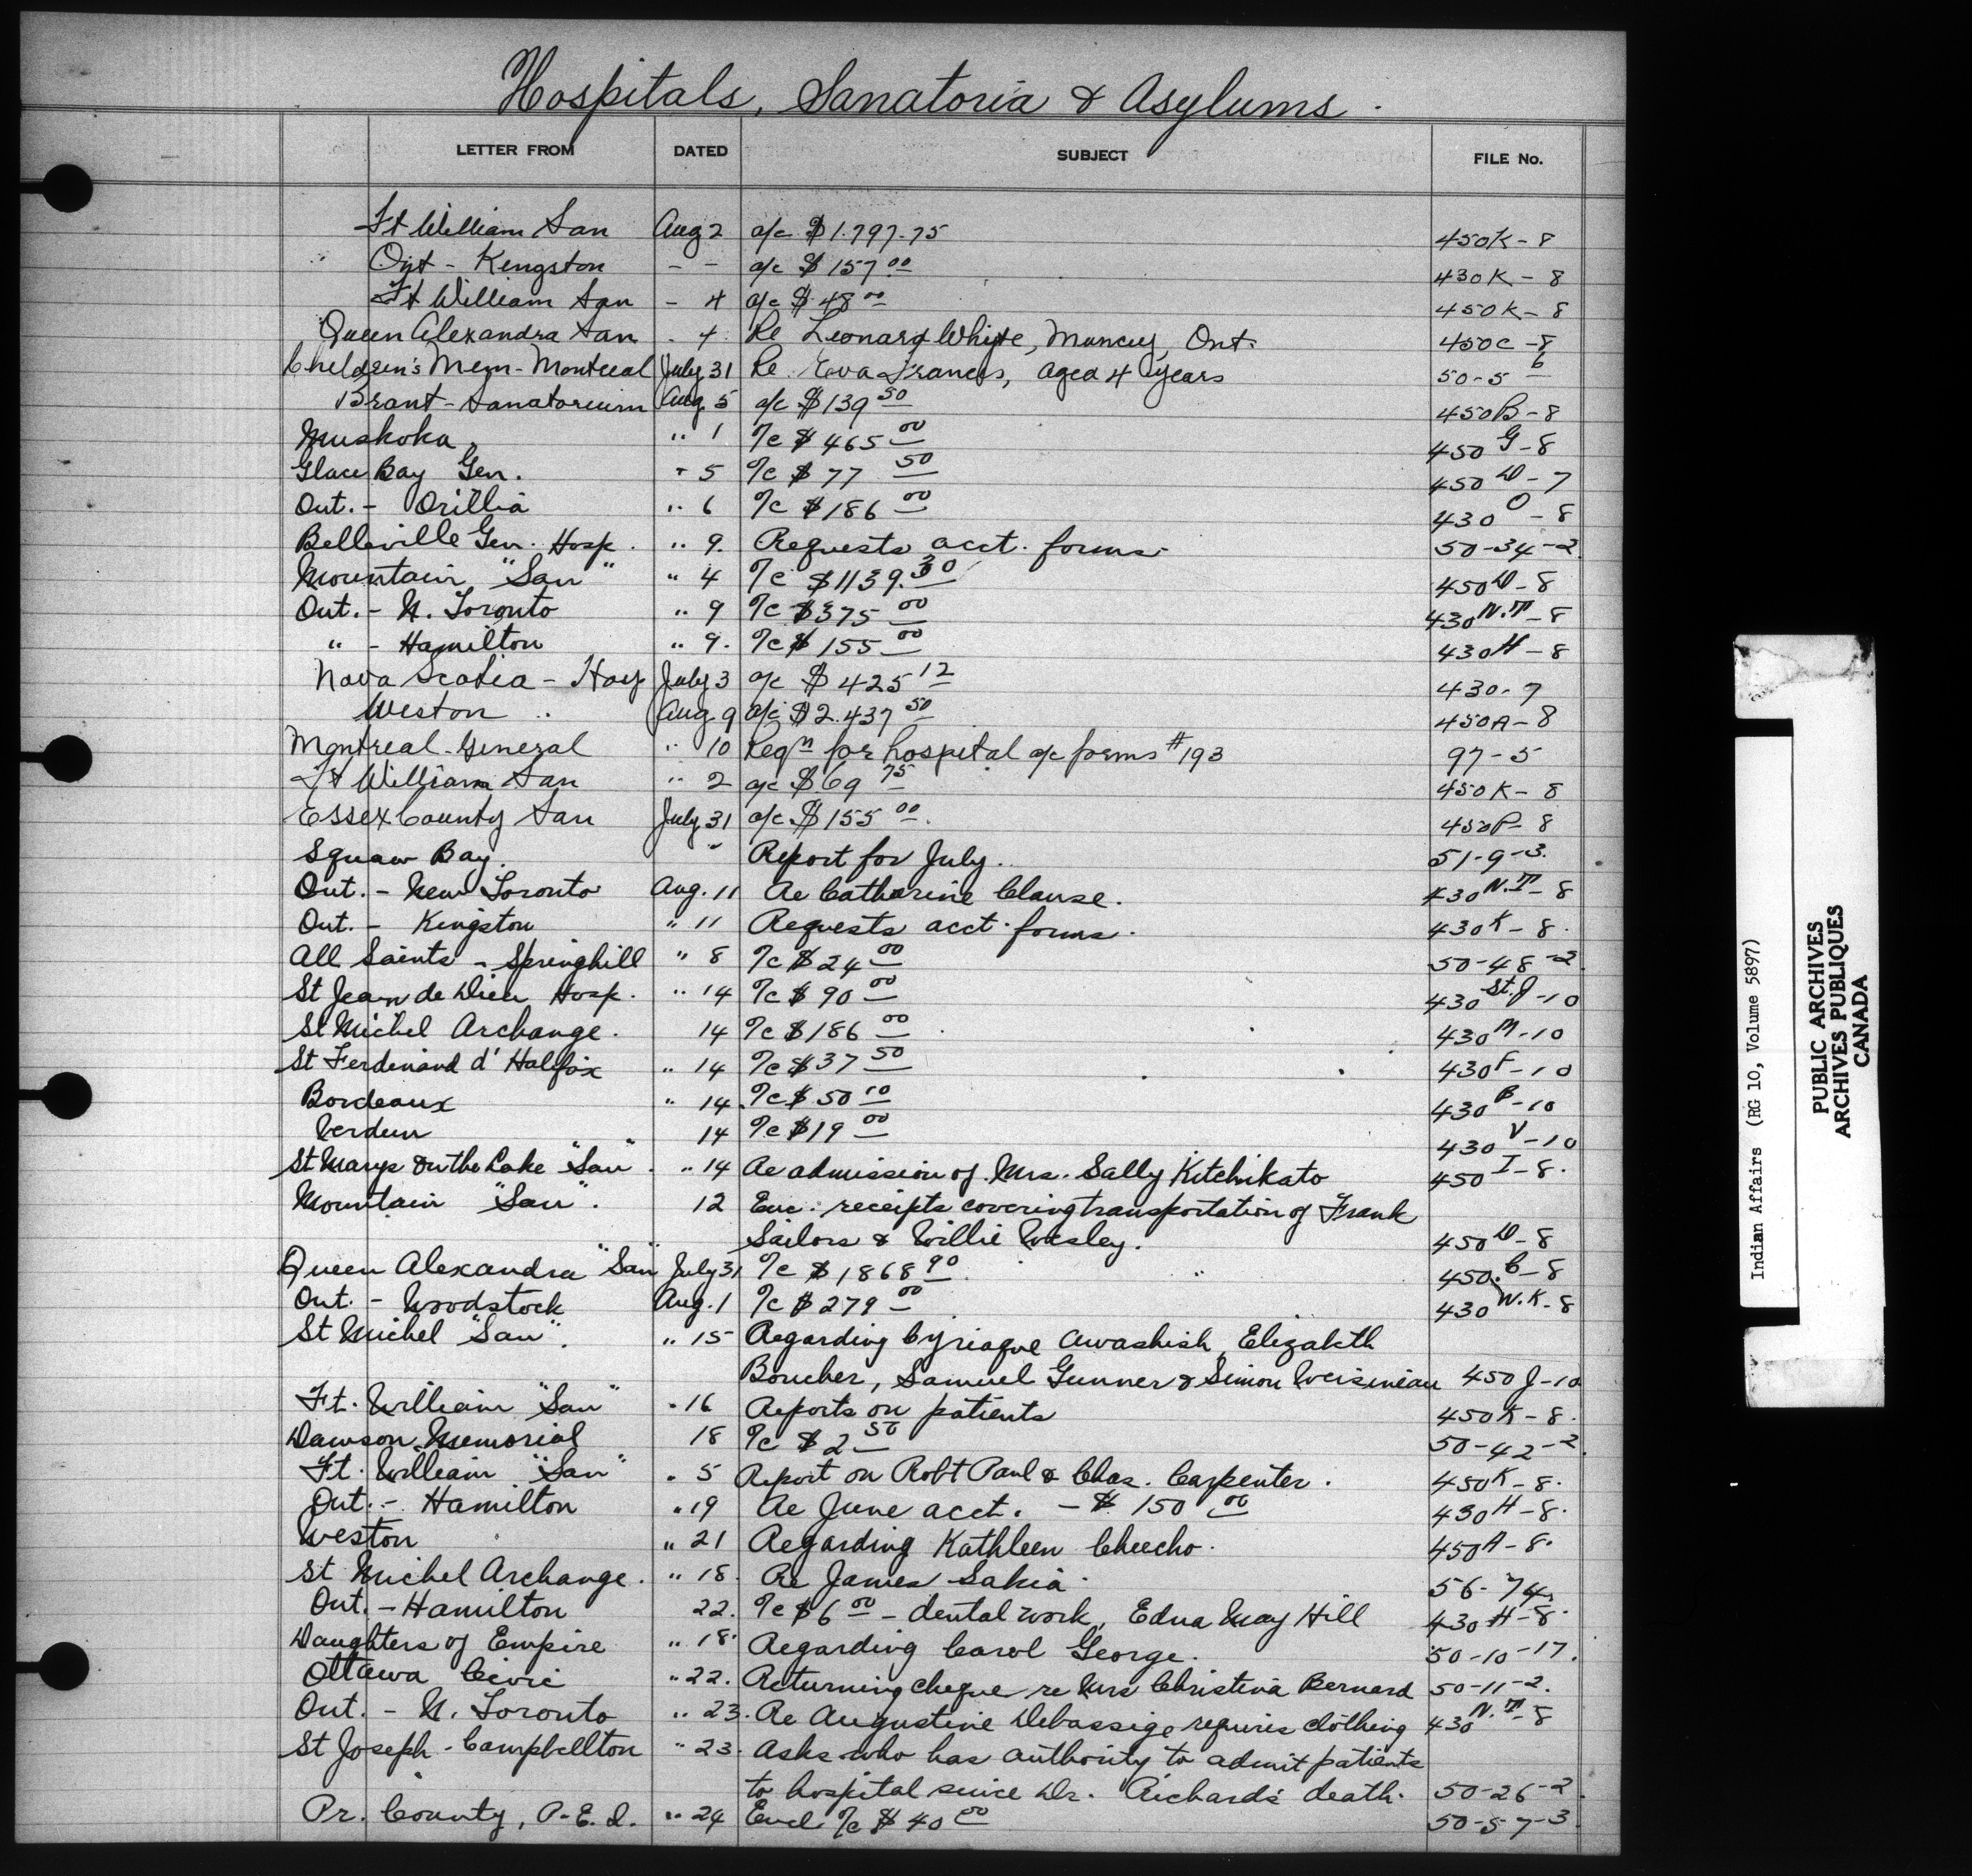 Hospitals, Sanatoria & Asylums.
LETTER FROM DATED SUBJECT FILE No.
Ft William San Aug 2 a/c $1.797.75 450K-8
Ont - Kingston - - a/c $157 00 430K-8
Ft William San - 4 a/c $48 00 450K-8
Queen Alexandra San - 4 Re Leonard White, Muncey, Ont. 450C-8
Children's Mem- Montreal July 31 Re Eva Francis, aged 4 years 50-5 6
Brant-Sanatorium Aug. 5 a/c $139 50 450B-8
Muskoka " 1 a/c $465 00 450 G-8
Glace Bay Gen. " 5 a/c $77 50 450 D-7
Ont. - Orillia " 6 a/c $186 00 430 O-8
Belleville Gen. Hosp. " 9. Requests acct. forms. 50-34-2
Mountain "San" " 4 a/c $1139.30 450 D-8
Ont. - N. Toronto " 9 a/c $375 00 430 N.T-8
" - Hamilton " 9. a/c $155 00 430 H-8
Nova Scotia - Hosp July 3 a/c $425 12 430-7
Weston " Aug. 9 a/c $2.437 50 450A-8
Montreal-General " 10 Reqn for hospital a/c forms #193 97-5
Ft William San " 2 a/c $69 75 450K-8
Essex County San July 31 a/c $155 00. 450P-8
Squaw Bay. " Report for July. 51-9-3.
Ont. - New Toronto Aug. 11 Re Catharine Clause. 430 N.T-8
Ont. - Kingston " 11 Requests acct. forms. 430 K-8.
All Saints - Springhill " 8 a/c $24 00 50-48-2
St Jean de Dieu Hosp. " 14 a/c $90 00 430 St.J-10
St Michel Archange. 14 a/c $186 00 430 M-10
St Ferdinand d'Halifax " 14 a/c $37 50 430 F-10
Bordeaux " 14 a/c $50 10 430 B-10
Verdun 14 a/c $19 00 430 V-10
St Marys on the Lake "San". " 14 Re admission of Mrs. Sally Kitchikato 450 I-8.
Mountain "San". 12 Enc. receipts covering transportation of Frank
Sailors & Willie Wesley. 450 D-8
Queen Alexandra "San" July 31 a/c $1868 90 450 C-8
Ont. - Woodstock Aug. 1 a/c $279 00 430 W.K-8
St Michel "San". " 15 Regarding Cyriaque Awashish, Elizabeth
Boucher, Samuel Gunner & Simon Weisineau 450 J-10
Ft. William "San" " 16 Reports on patients 450K-8.
Dawson Memorial 18 a/c $2 50 50-42-2
Ft. William "San" " 5 Report on Robt Paul & Chas. Carpenter. 450K-8.
Ont. - Hamilton " 19 Re June acct. - $150 00 430 H-8.
Weston " 21 Regarding Kathleen Cheecho. 450A-8.
St Michel Archange. " 18. Re James Sakia. 56-74
Ont. - Hamilton 22. a/c $6 00 - dental work, Edna May Hill 430 H-8.
Daughters of Empire " 18. Regarding Carol George. 50-10-17.
Ottawa Civic " 22. Returning cheque re Mrs Christina Bernard 50-11-2.
Ont. - N. Toronto " 23. Re Augustine Debassige requires clothing 430 N.T-8
St Joseph - Campbellton " 23. Asks who has authority to admit patients
to hospital since Dr. Richard's death. 50-26-2.
Pr. County, P.E.I. " 24 Encl. a/c $40 00 50-57-3
Indian Affairs (RG 10, Volume 5897)
PUBLIC ARCHIVES
ARCHIVES PUBLIQUES
CANADA